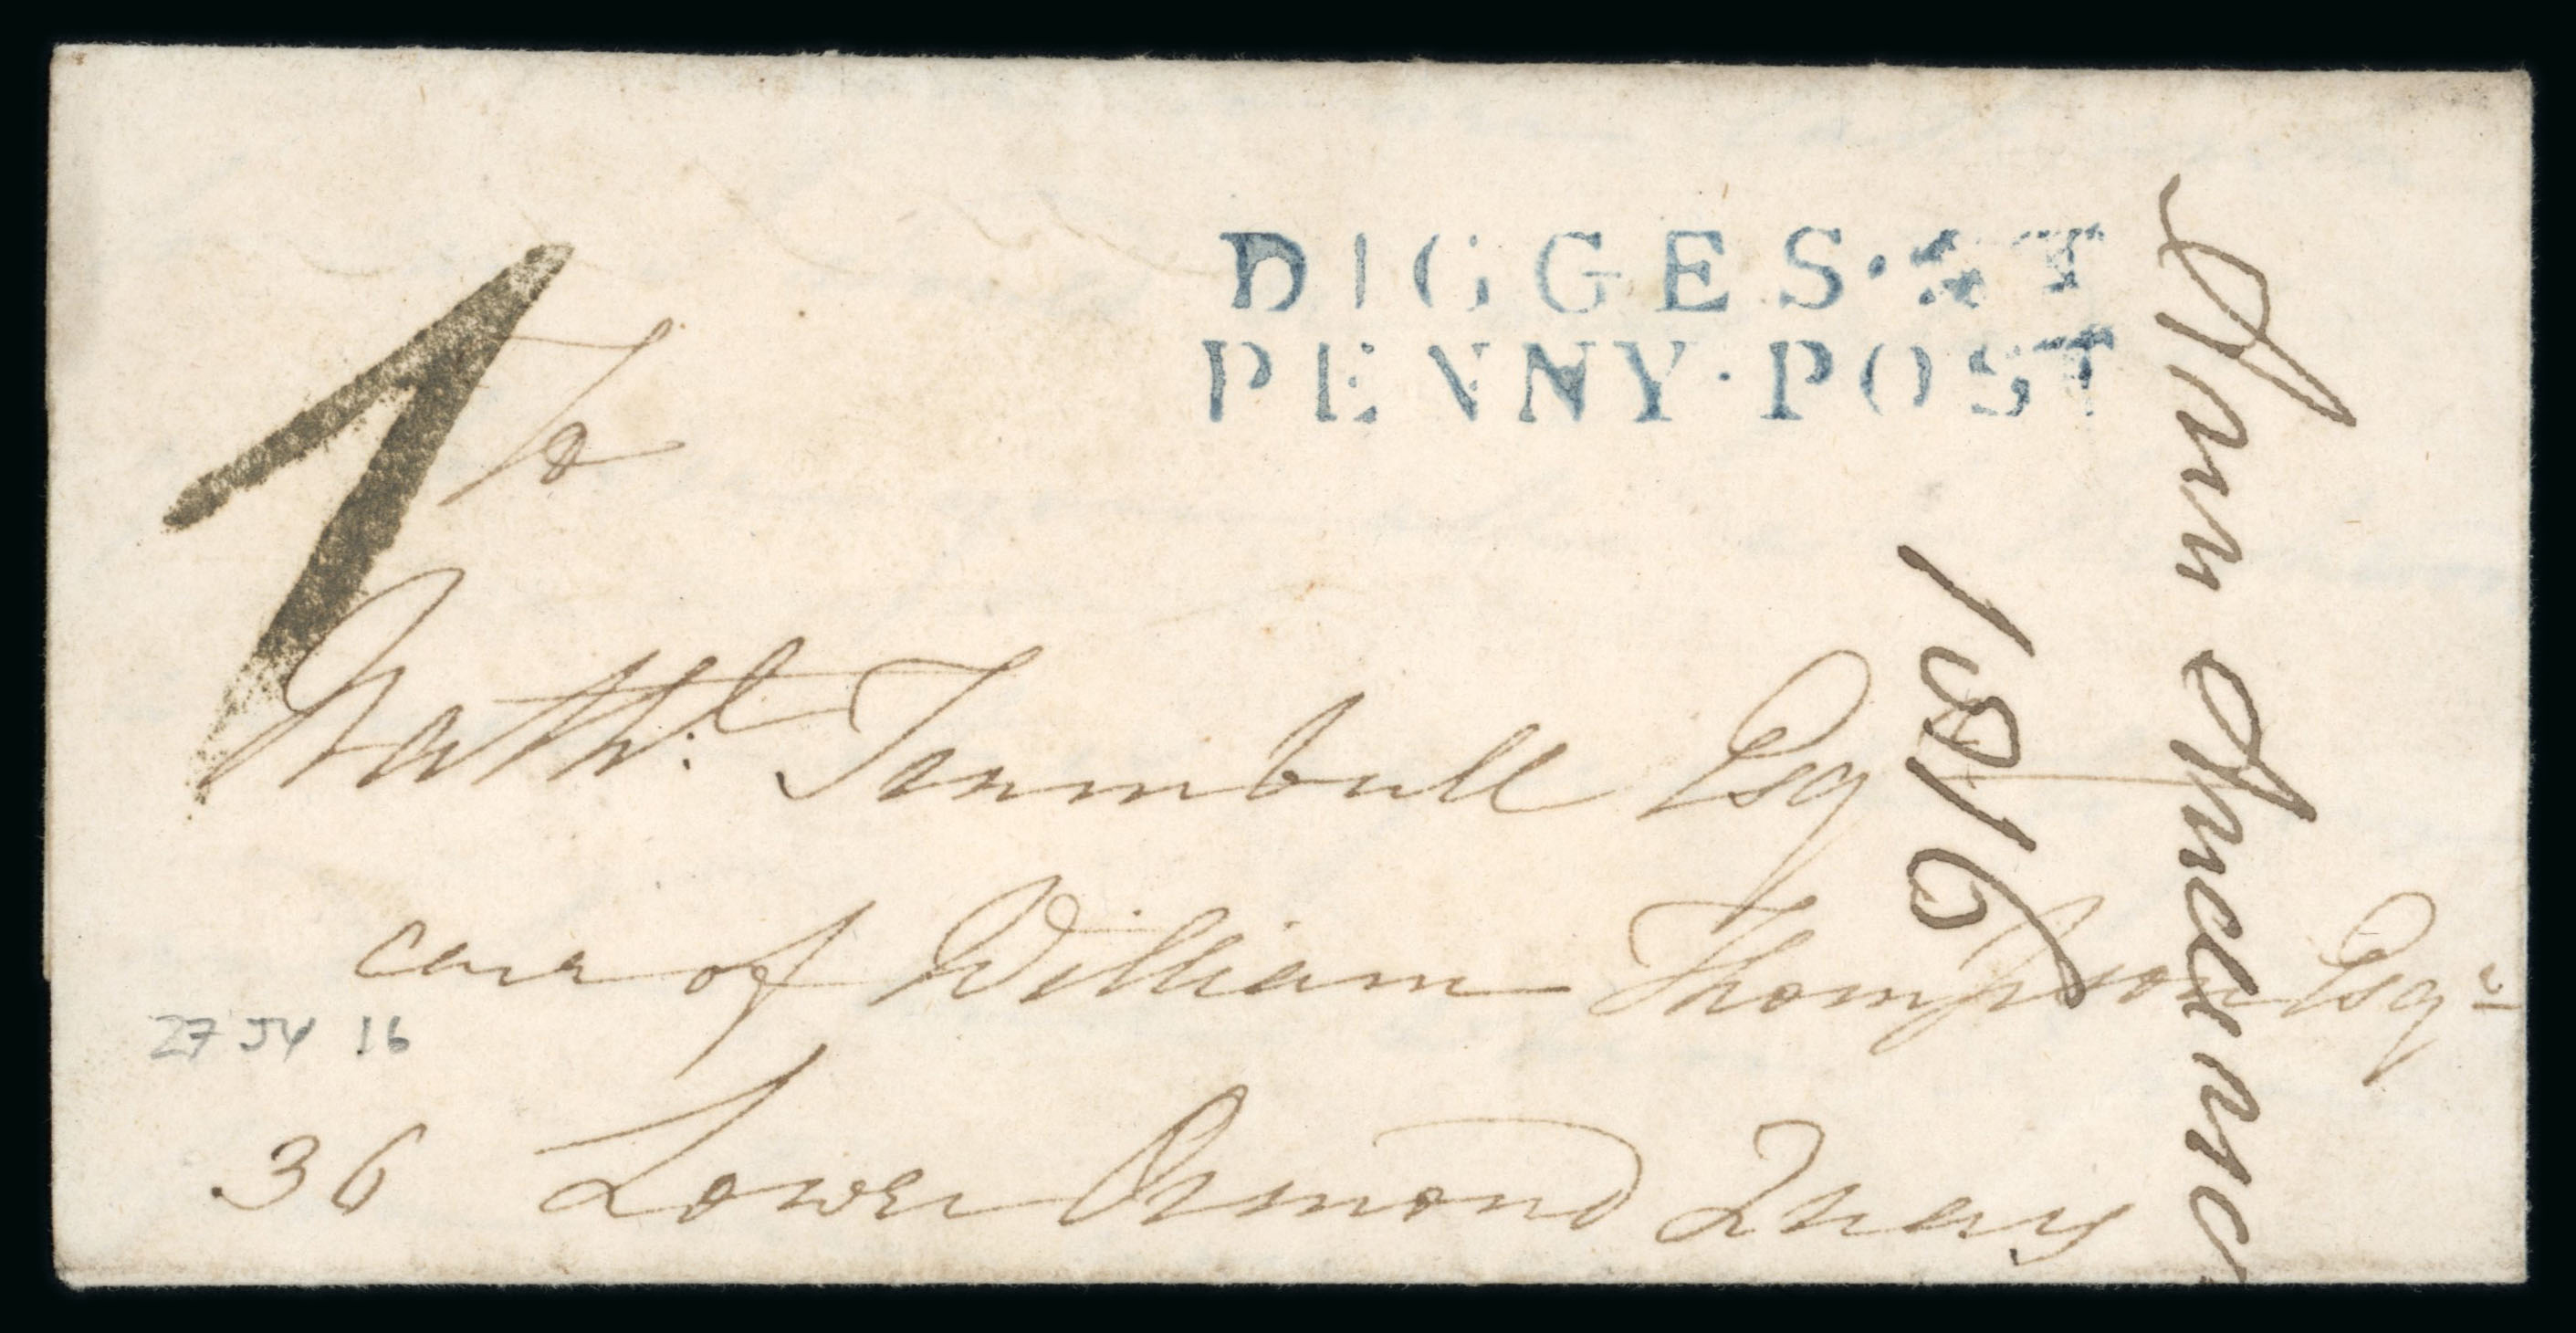 DIGGES·ST
PENNY·POST
1
To
Nathl. Trumbull Esq
care of William Thompson Esqr
36 Lower Ormond Quay
27 JY 16
Ann
1816